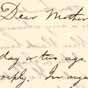 Dear Mother
day or two ago.
reply. In any